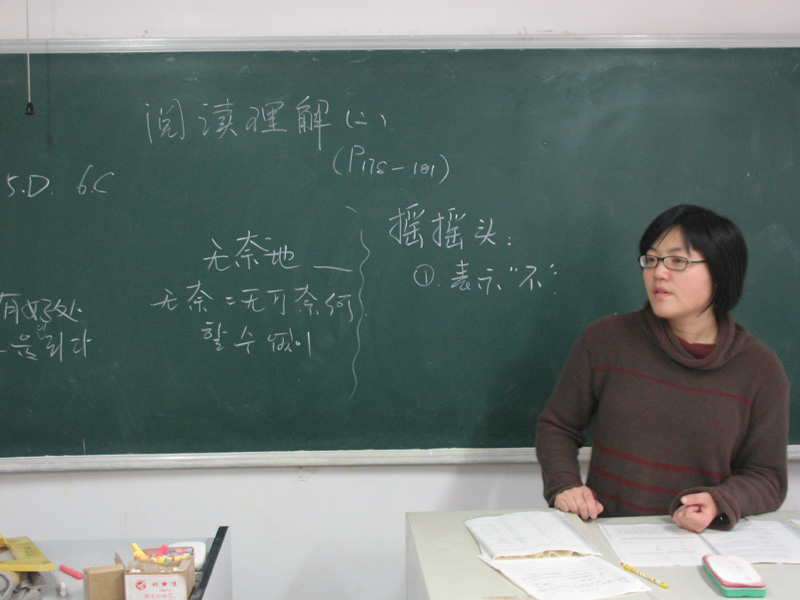 阅读理解(二)
(P175-181)
5.D. 6.C
有好处
을 되다
无奈地 —
无奈:无可奈何
할 수 없이
摇摇头:
①. 表示“不”.